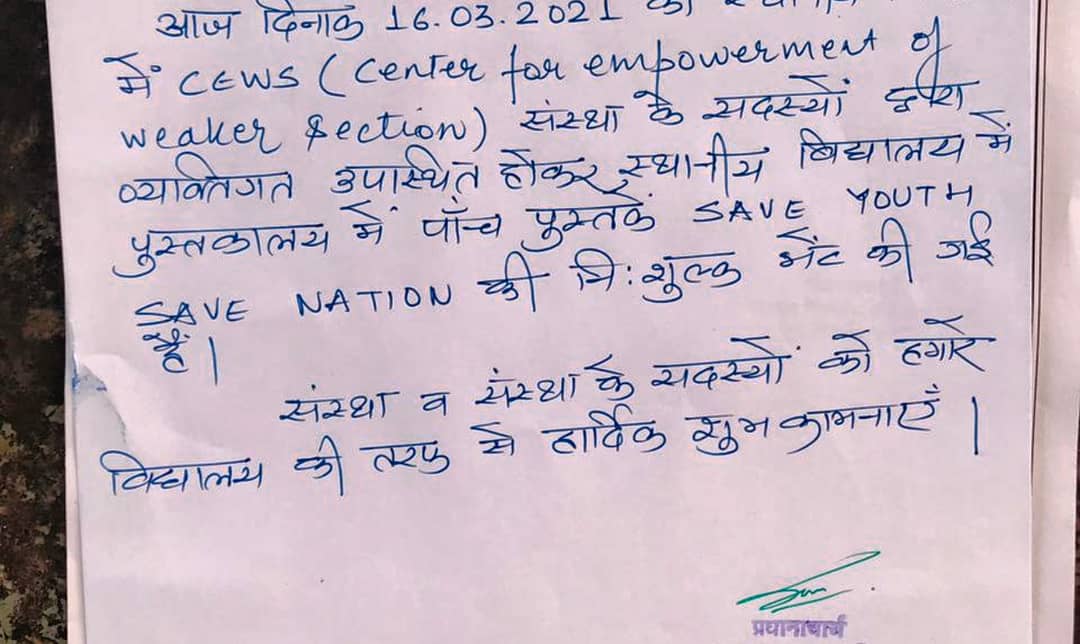 आज दिनांक 16.03.2021 को
में CEWS (Center for empowerment of
weaker section) संस्था के सदस्यों द्वारा
व्यक्तिगत उपस्थित होकर स्थानीय विद्यालय में
पुस्तकालय में पाँच पुस्तकें SAVE YOUTH
SAVE NATION की नि:शुल्क भेंट की गई
हैं।
संस्था व संस्था के सदस्यों को हमारे
विद्यालय की तरफ से हार्दिक शुभकामनाएँ।
प्रधानाचार्य